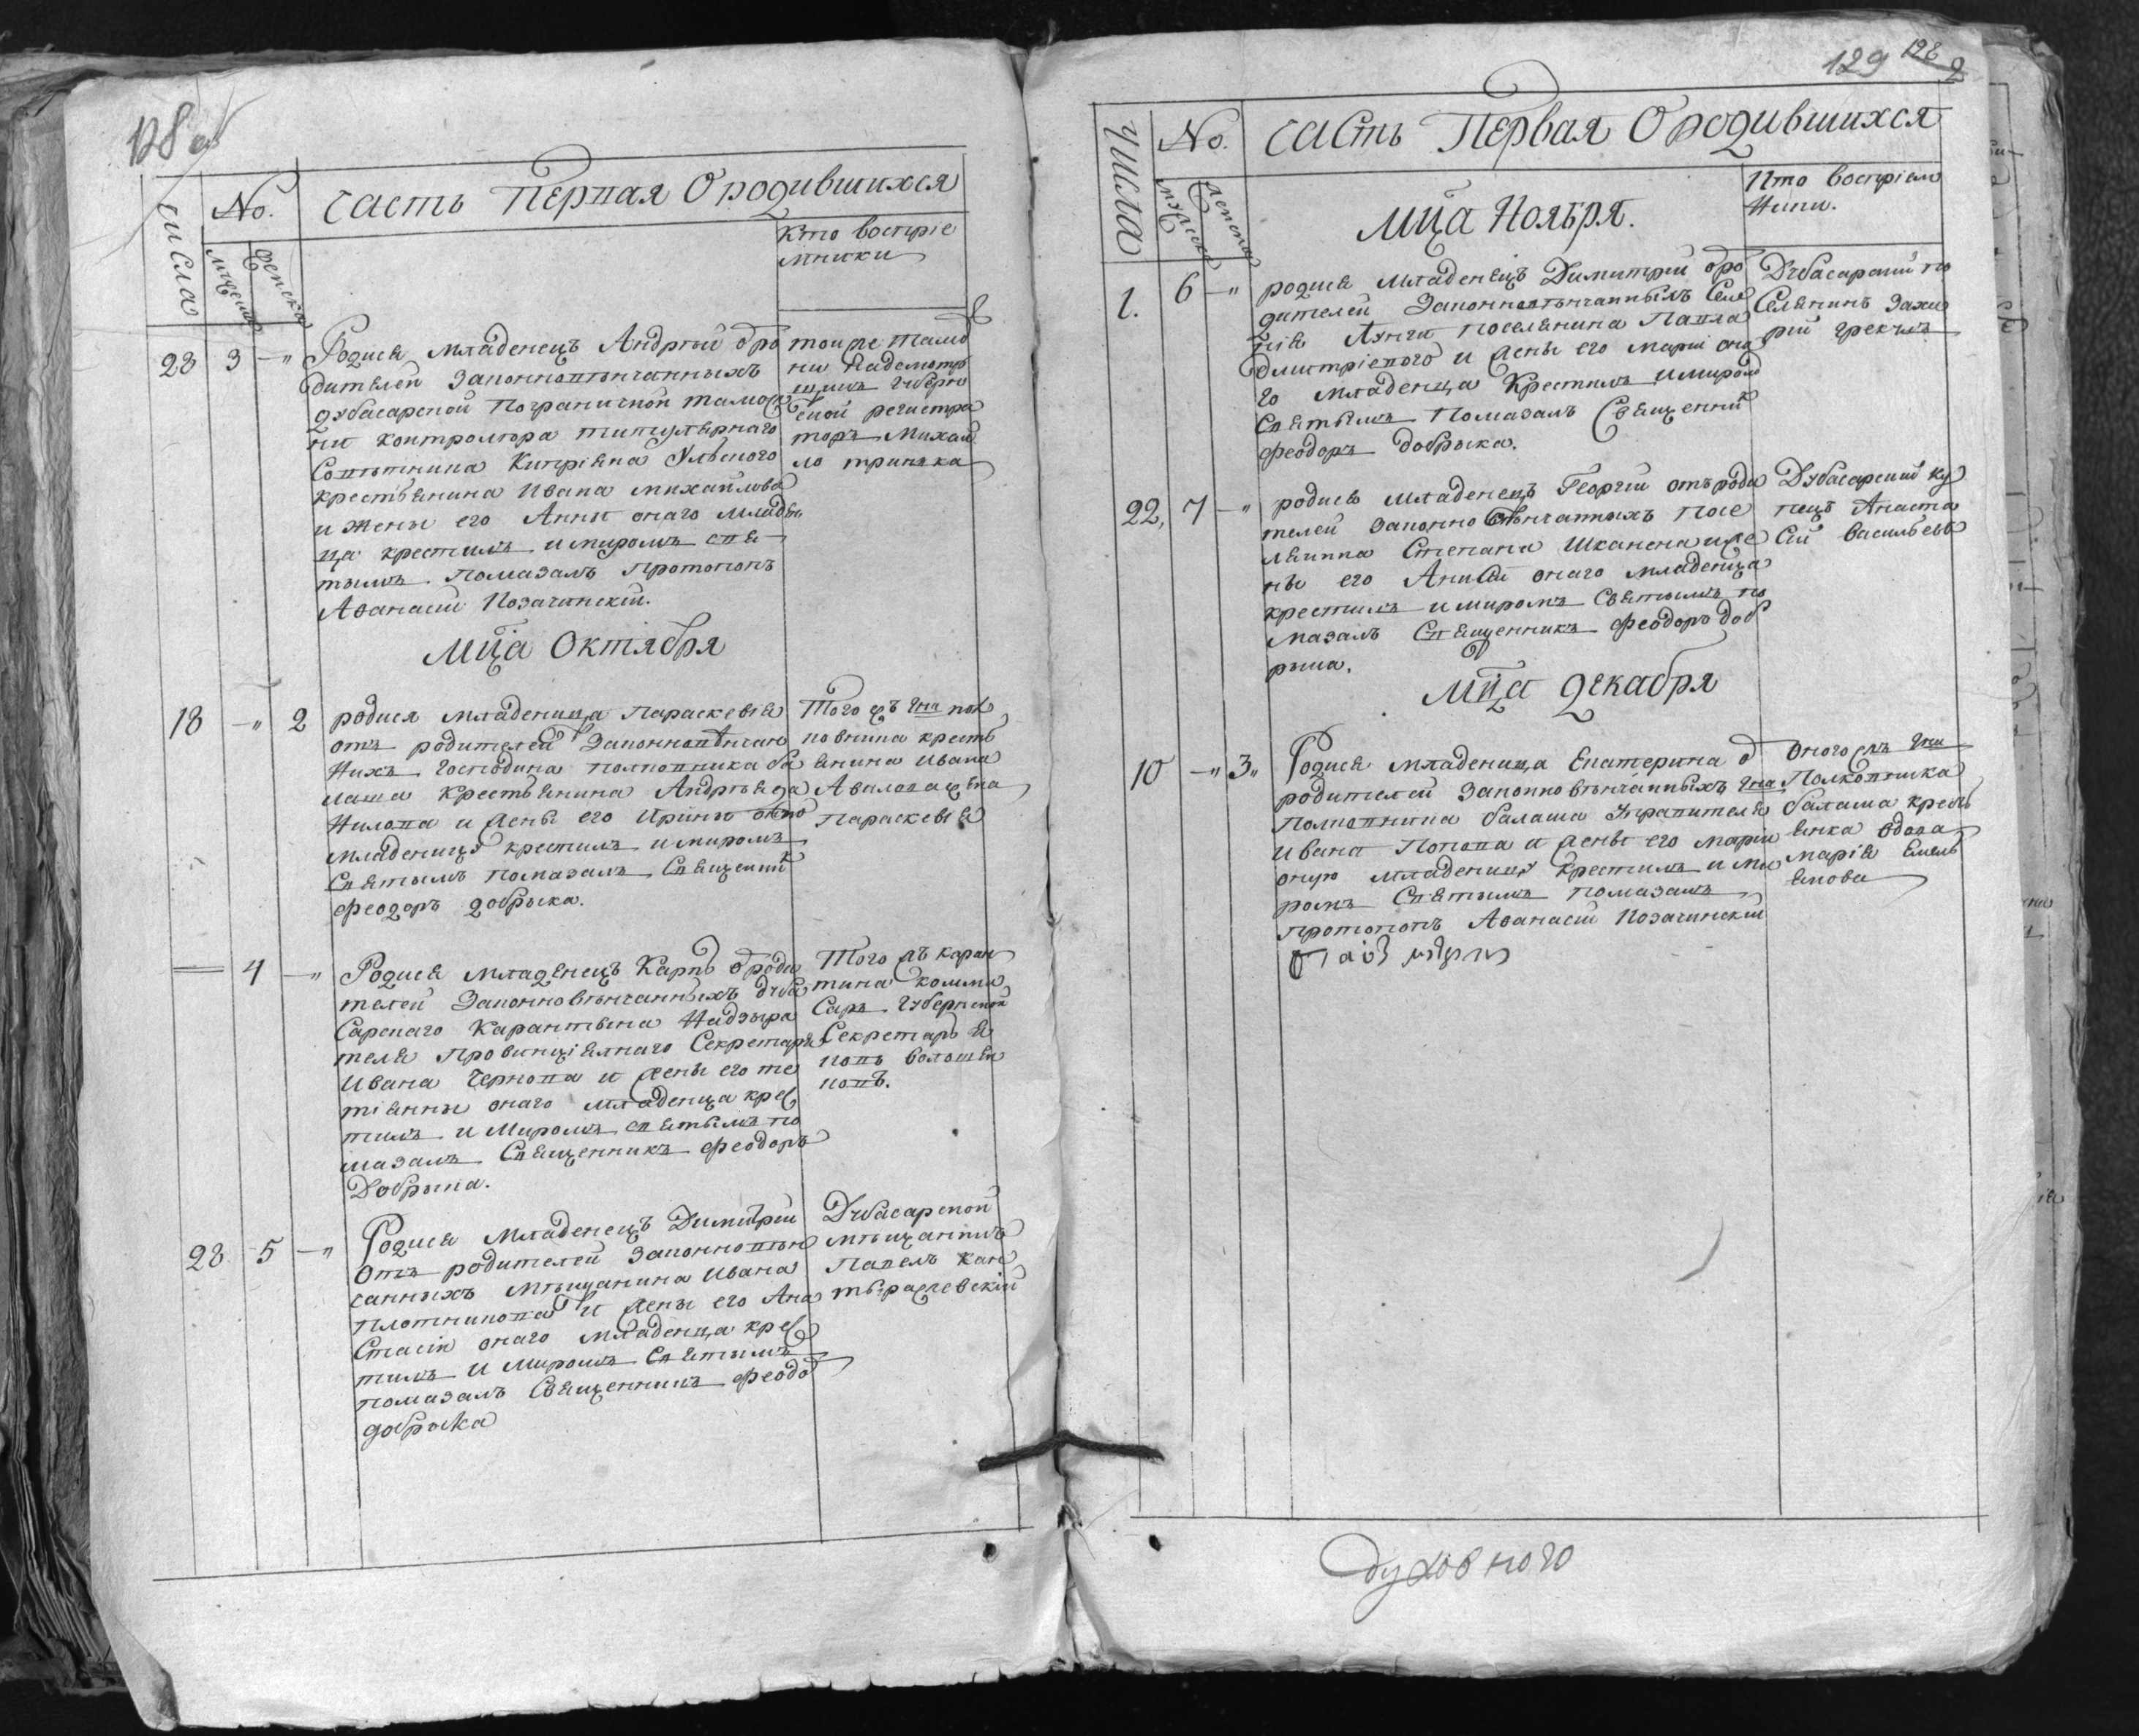 128 об
числа
No.
часть Первая О родившихся
мужеска
женска
Кто воспрiе
мники
28 3 — „
Родися младенецъ Андрѣй ѿ ро
дителей законновѣнчанныхъ
дубасарской пограничной тамож
ни контролюра титулярнаго
Совѣтника Кипрiяна Ульского
крестьянина Ивана михайлова
и жены его Анны онаго младен
ца крестилъ и миромъ свя
тымъ помазалъ протопопъ
Аѳанасiй Козачинскiй.
той же тамо
ни надсмотр
щикъ губерн
ской регистра
торъ Михай
ло
мца Октября
18 — „ 2
родися младеница Параскевiя
отъ родителей законновѣнчан
ныхъ господина полковника ба
лаша крестьянина Андрѣя да
нилова и жены его Ирины
младеницу крестилъ и миромъ
Святымъ помазалъ Священник
феодоръ добрыка.
Того жъ гна пол
ковника кресть
янина Ивана
Авилова жена
Параскевiя
4 — „
Родися младенецъ Карпъ ѿ роди
телей законновѣнчанныхъ дуба
сарскаго карантина надзыра
теля провинцiялнаго Секретаря
Ивана Чернова и жены его те
тiянны онаго младенца крес
тилъ и Миромъ святымъ по
мазалъ Священникъ феодоръ
Добрыка.
Того жъ каран
тина комми
саръ губернской
Секретарь Я
ковъ Волошен
ковъ.
28 5 — „
Родися младенецъ Димитрiй
отъ родителей законновѣн
чанныхъ мѣщанина Ивана
плотникова и жены его Ана
стасiи онаго младенца крес
тилъ и миромъ Святымъ
помазалъ Священникъ феодо
добрыка
Дубасарской
мѣщанинъ
Павелъ Кан
129 128
числа
No.
часть Первая О родившихся
мужеска
женска
мца Ноября.
Кто воспрiем
ники.
1. 6 — „
родися младенецъ Димитрiй ѿ ро
дителей законновѣнчанныхъ Селе
нiя Лунги поселянина Павла
дмитрiевого и жены его марiи она
го младенца крестилъ и миромъ
Святымъ помазалъ Священник
феодоръ добрыка.
Дубасарскiй по
селянинъ Заха
рiй грекулъ
22, 7 — „
родися младенецъ Георгiй отъ роди
телей законно вѣнчанныхъ посе
лянина Степана Шканена и же
ны его Аниси онаго младенца
крестилъ и миромъ Святымъ по
мазалъ Священникъ феодоръ доб
рыка.
Дубасарскiй ку
пецъ Анаста
сiй Васильевъ
мца декабря
10 — „ 3„
Родися младеница Екатерина ѿ
родителей законновѣнчанныхъ гна
полковника балаша управителя
Ивана Попова и жены его марiи
оную младеницу крестилъ и ми
ромъ Святымъ помазалъ
протопопъ Аѳанасiй Козачинскiй
оного жъ гна
Полковника
балаша кресть
янка вдова
марiя Емель
янова
духовного